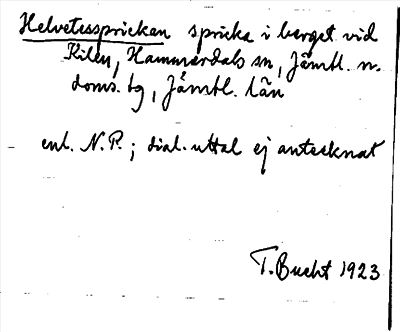 Helvetesspricken spricka i berget vid
Kilen, Hammerdals sn, Jämtl. n.
doms. tg, Jämtl. län
enl. N.P.; dial. uttal ej antecknat
T. Bucht 1923